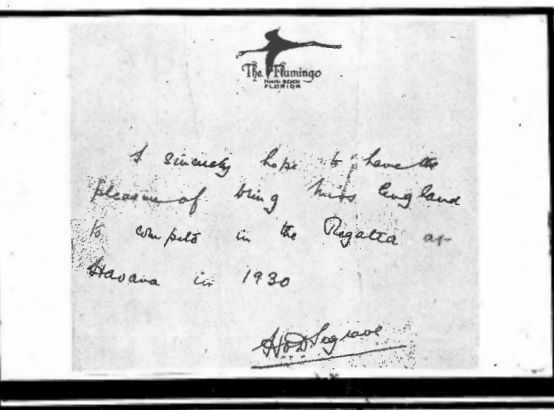 The Flamingo
MIAMI BEACH
FLORIDA
I sincerely hope to have the
pleasure of bring Miss England
to compete in the Regatta at
Havana in 1930
H O D Segrave